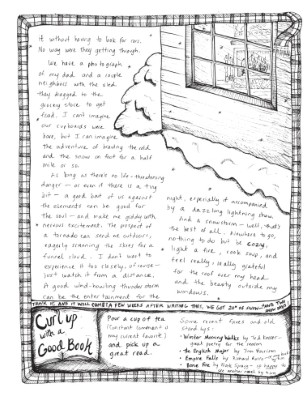 it without having to look for cars.
No way were they getting though.
We have a photograph
of my dad and a couple
neighbors with the sled
they dragged to the
grocery store to get
food. I can't imagine
our cupboards were
bare, but I can imagine
the adventure of braving the cold
and the snow on foot for a half
mile or so.
As long as there's no life-threatening
danger — or even if there is a tiny
bit — a good bout of us against
the elements can be good for
the soul — and make me giddy with
nervous excitement. The prospect of
a tornado can send me outdoors,
eagerly scanning the skies for a
funnel cloud. I don't want to
experience it too closely, of course —
just watch it from a distance.
A good wind-howling thunderstorm
can be the entertainment for the
night, especially if accompanied
by a dazzling lightning show.
And a snowstorm — well, that's
the best of all. Nowhere to go,
nothing to do but be cozy,
light a fire, cook soup, and
feel really, really grateful
for the roof over my head
and the beauty outside my
windows.
A FEW WEEKS AFTER WRITING THIS, WE GOT 20" OF
Curl up
with a
Good Book
Pour a cup of tea
and pick up a
great read.
Some recent faves and old
stand-bys: